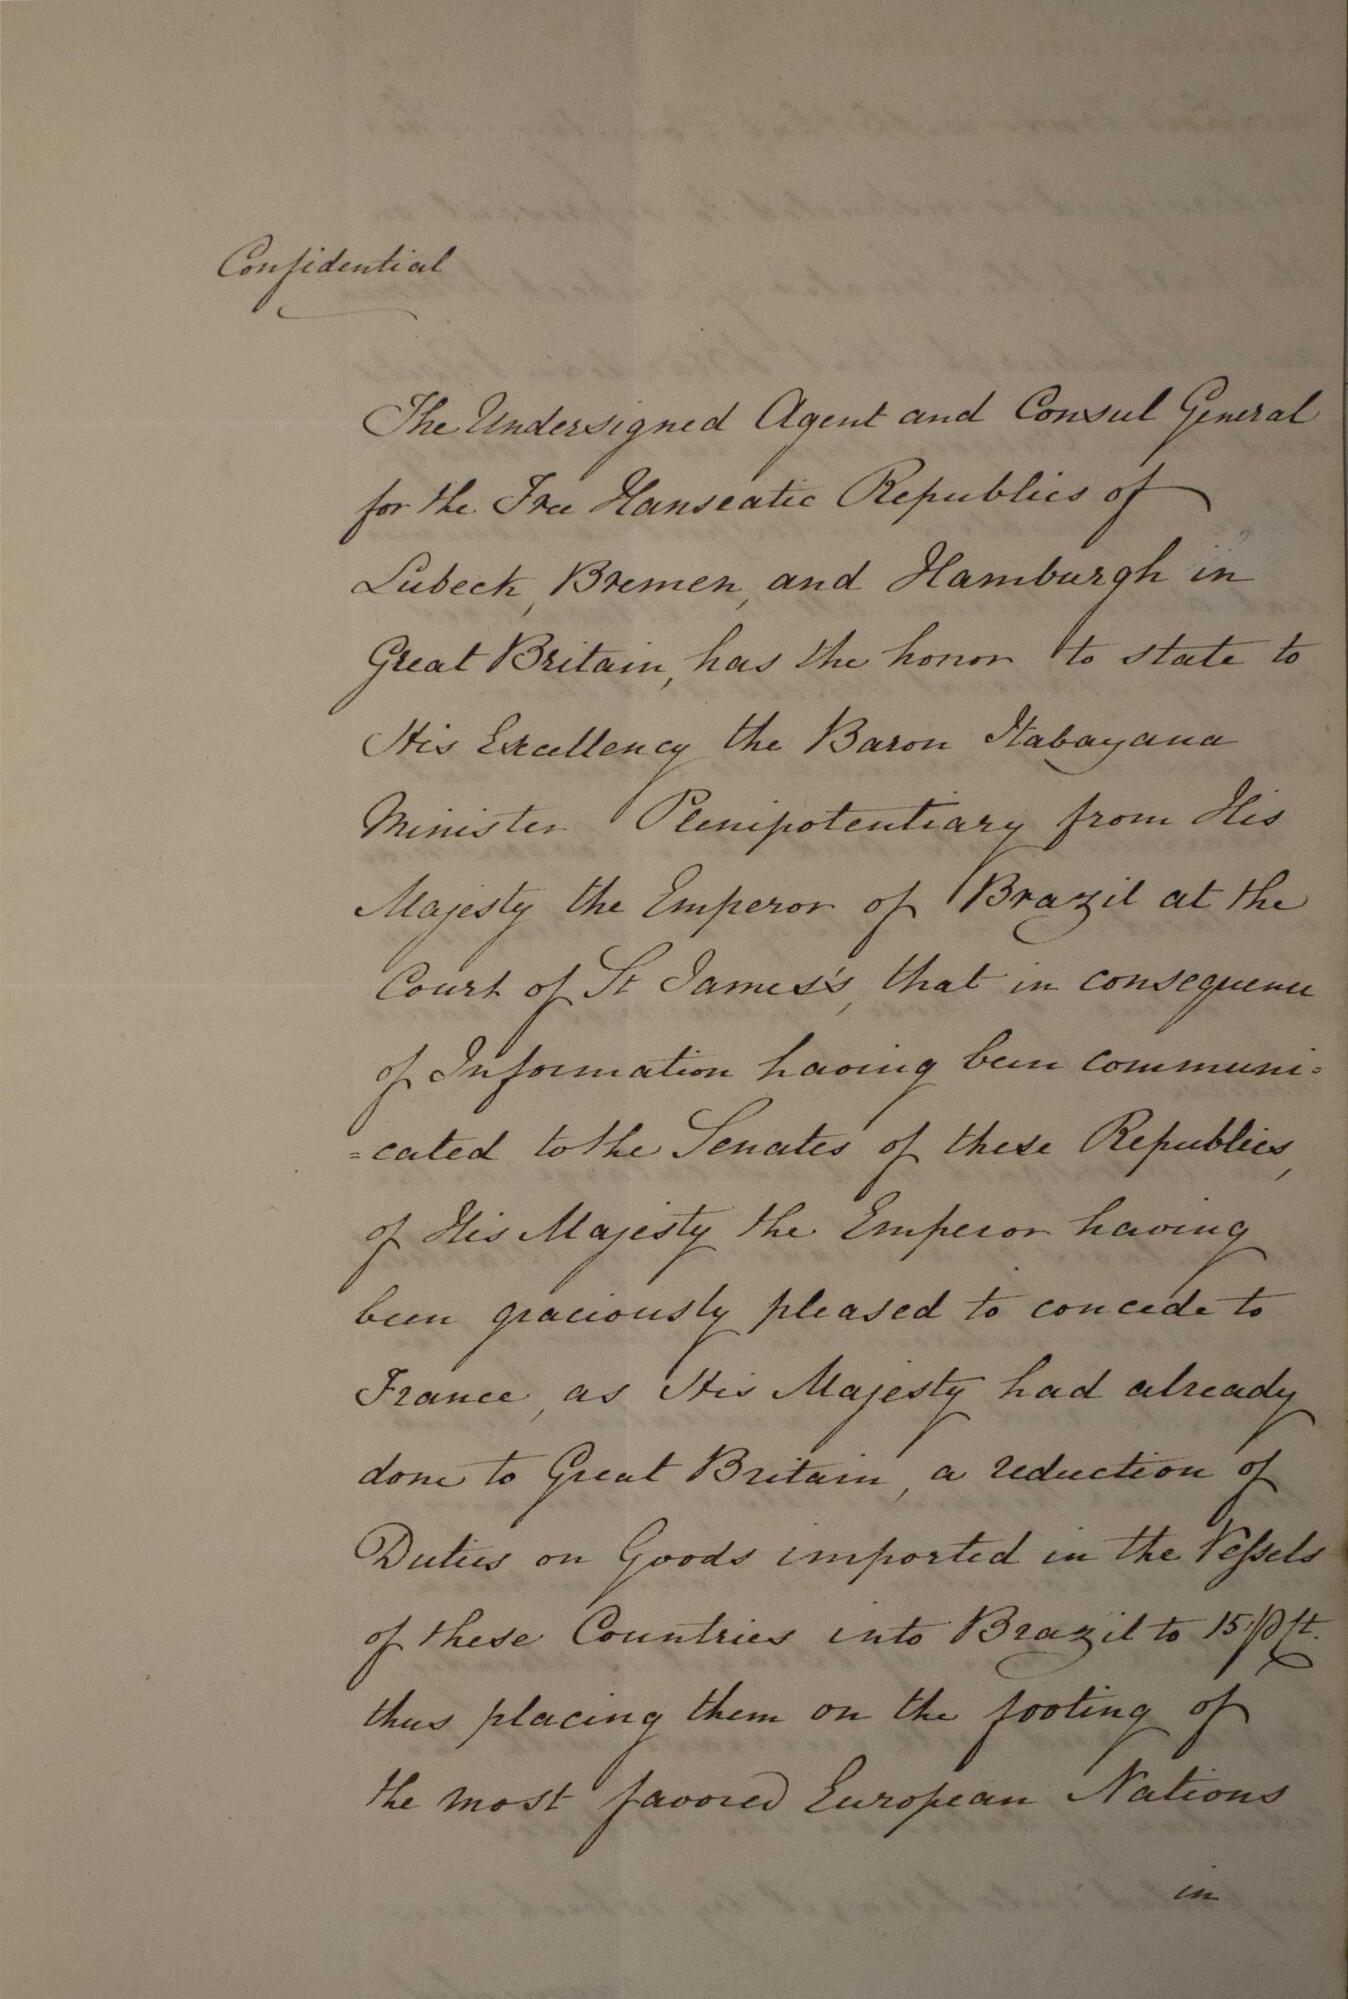 Confidential
The Undersigned Agent and Consul General
for the Free Hanseatic Republics of
Lubeck, Bremen, and Hamburgh in
Great Britain, has the honor to state to
His Excellency the Baron Itabayana
Minister Plenipotentiary from His
Majesty the Emperor of Brazil at the
Court of St James's, that in consequence
of Information having been communi=
=cated to the Senates of these Republics,
of His Majesty the Emperor having
been graciously pleased to concede to
France, as His Majesty had already
done to Great Britain, a reduction of
Duties on Goods imported in the Vessels
of these Countries into Brazil to 15 p Ct.
thus placing them on the footing of
the most favored European Nations
in